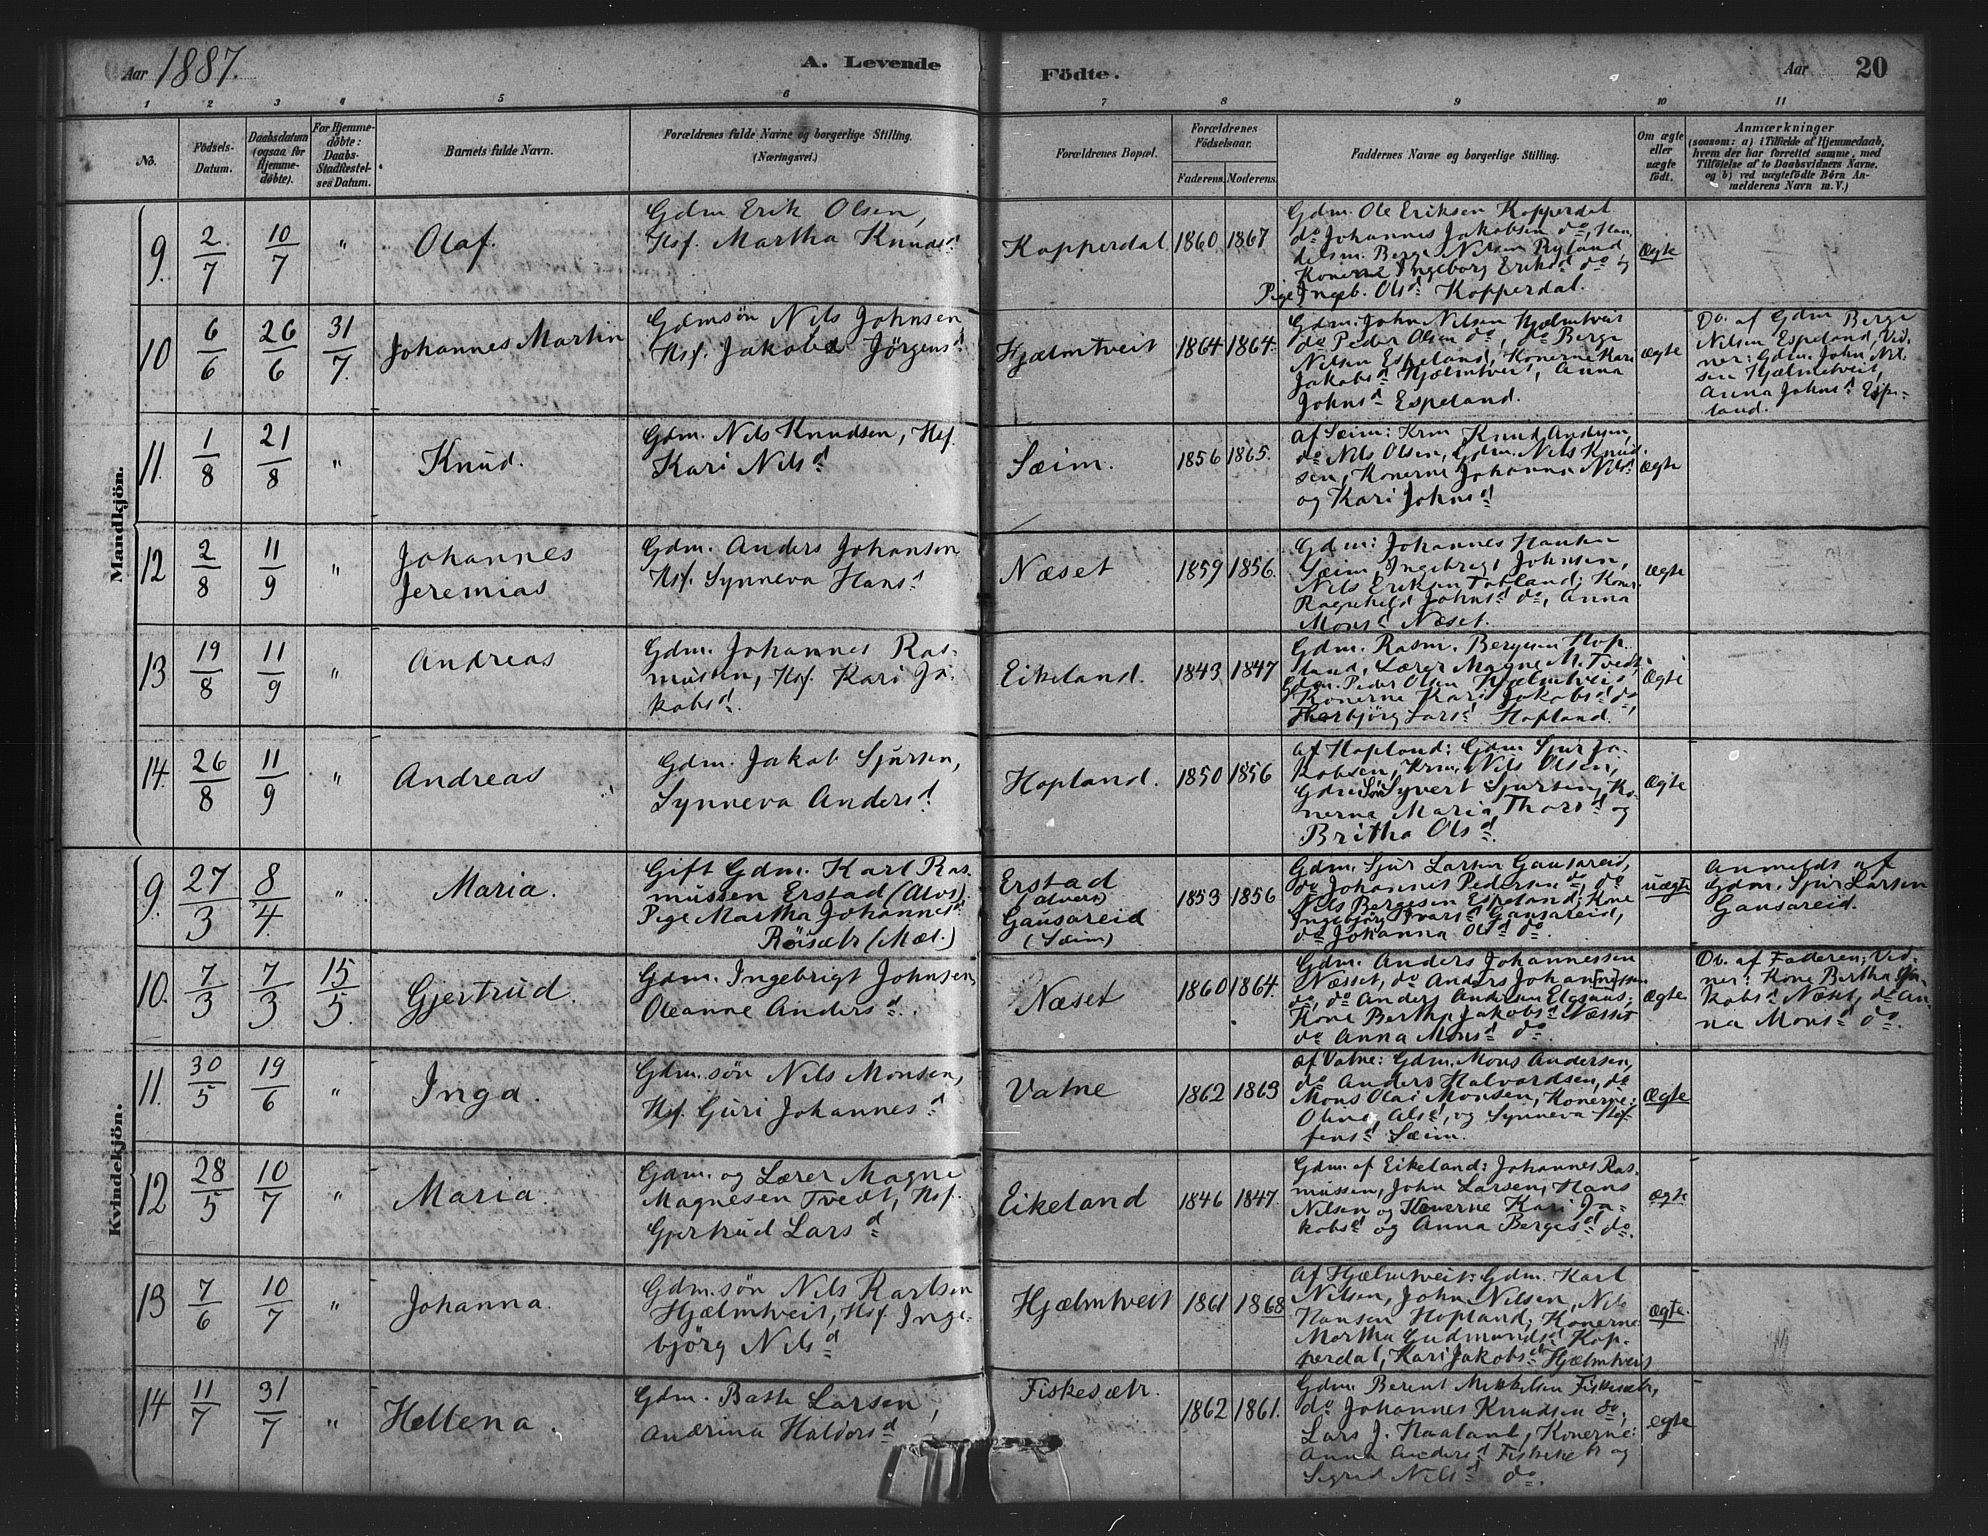 Aar 1887.
A. Levende
Födte.
Aar
20
1 2 3 4 5 6 7 8 9 10 11
No.
Födsels-
Datum.
Daabsdatum
(ogsaa for
Hjemme-
döbte).
For Hjemme-
döbte:
Daabs-
Stadfæstel-
ses Datum.
Barnets fulde Navn.
Forældrenes fulde Navne og borgerlige Stilling.
(Næringsvei.)
Forældrenes Bopæl.
Forældrenes
Födselsaar.
Faderens.
Moderens.
Faddernes Navne og borgerlige Stilling.
Om ægte
eller
uægte
födt.
Anmærkninger
(saasom: a) i Tilfælde af Hjemmedaab,
hvem der har forrettet samme, med
Tilföielse af to Daabsvidners Navne,
og b) ved uægtefödte Börn An-
melderens Navn m. V.)
Mandkjön.
9. 2/7 10/7 " Olaf.
Gdm Erik Olsen,
Hsf. Martha Knudsd
Kopperdal 1860 1867
Gdm. Ole Eriksen Kopperdal
do Johannes Jakobsen do, Han
delsm. Berge Nilsen Ryland
Konerne Ingeborg Eriksd do og
Pige Ingeb. Olsd Kopperdal.
Ægte
10 6/6 26/6 31/7. Johannes Martin
Gdmsøn Nils Johnsen
Hsf. Jakobe Jörgensd
Hjælmtveit 1864 1864
Gdm. John Nilsen Hjælmtveit
do Peder Olsen do, do Berge
Nilsen Espeland, Konerne Kari
Jakobsd Hjælmtveit, Anna
Johnsd Espeland.
ægte
Db. af Gdm Berge
Nilsen Espeland, Vid-
ner: Gdm. John Nil
sen Hjælmetveit,
Anna Johnsd Espe-
land.
11. 1/8 21/8 " Knud.
Gdm. Nils Knudsen, Hsf.
Kari Nilsd
Sæim. 1856 1865.
af Sæim: Krm Knud Andersen,
do Nils Olsen, Gdm. Nils Knud
sen, Konerne Johanna Nilsd
og Kari Johnsd
ægte
12 2/8 11/9 " Johannes
Jeremias
Gdm. Anders Johansen
Hsf. Synneva Hansd
Næset 1859 1856.
Gdm: Johannes Hansen
Sæim, Ingebrigt Johnsen,
Nils Eriksen Totland; Koner
Ragnhild Johnsd do, Anna
Monsd Næset.
ægte
13 19/8 11/9 " Andreas
Gdm. Johannes Ras-
mussen, Hsf. Kari Ja-
kobsd.
Eikeland. 1843 1847
Gdm. Rasm. Bergesen Hop-
land, Lærer Magne M. Tvedt
Gdm. Peder Olsen Hjælmtveit,
Konerne Kari Jakobsd do,
Thorbjörg Larsd Hopland.
Ægte
14. 26/8 11/9 " Andreas
Gdm. Jakob Sjursen,
Synneva Andersd.
Hopland. 1850 1856
af Hopland: Gdm Sjur Ja-
kobsen, Krm. Nils Olsen,
Gdmsøn Syvert Sjursen, Ko-
nerne Maria Thorsd og
Britha Olsd
Ægte
Kvindekjön.
9. 27/3 8/4. " Maria.
Gift Gdm. Karl Ras-
mussen Erstad (Alvs)
Pige Martha Johannesd
Röisætr (Mæl.)
Erstad
(Alvers)
Gausareid
(Sæim)
1853 1856
Gdm. Sjur Larsen Gausareid,
do Johannes Pedersen do, do
Nils Bergesen Espeland; Kone
Ingebjörg Ivarsd Gausareid,
do Johanna Olsd do.
uægte
Anmeldt af
Gdm. Sjur Larsen
Gausareid.
10. 7/3 7/3 15/5. Gjertrud.
Gdm. Ingebrigt Johnsen
Oleanne Andersd.
Næset 1860 1864.
Gdm. Anders Johannessen
Næsset, do Anders Johannessen
do, do Anders Andersen Elgsaas;
Kone Bertha Jakobsd Næsset
do Anna Monsd do.
Ægte
Db. af Faderen; Vid-
ner: Kone Bertha Ja-
kobsd Næset, do An-
na Monsd do.
11. 30/5 19/6 " Inga.
Gdm.søn Nils Monsen,
Hsf. Guri Johannesd
Vatne 1862 1863
af Vatne: Gdm. Mons Andersen,
do Anders Halvardsen, do
Mons Olai Monsen, Konerne:
Olina Olsd, og Synneva Stef-
fensd Sæim.
Ægte
12 28/5 10/7 " Maria.
Gdm. og Lærer Magne
Magnesen Tvedt, Hsf.
Gjertrud Larsd
Eikeland 1846 1847.
Gdm. af Eikeland: Johannes Ras-
mussen, John Larsen, Hans
Nilsen og Konerne Kari Ja-
kobsd og Anna Bergesd do.
ægte
13 7/6 10/7 " Johanna.
Gdm.søn Nils Karlsen
Hjælmtveit, Hsf. Inge-
björg Nilsd
Hjælmtveit 1861 1868
Af Hjælmtveit: Gdm. Karl
Nilsen, John Nilsen, Nils
Hansen Hopland, Konerne
Martha Gudmundsd Kop-
perdal, Kari Jakobsd Hjælmtveit
ægte.
14 11/7 31/7 " Hellena.
Gdm. Batte Larsen,
Andrina Haldorsd
Fiskesætr. 1862 1861.
Gdm. Berent Mikkelsen Fiskesætr,
do Johannes Knudsen do,
Lars J. Haaland, Konerne:
Anna Andersd Fiskesetr og
Sigrid Nilsd do.
ægte